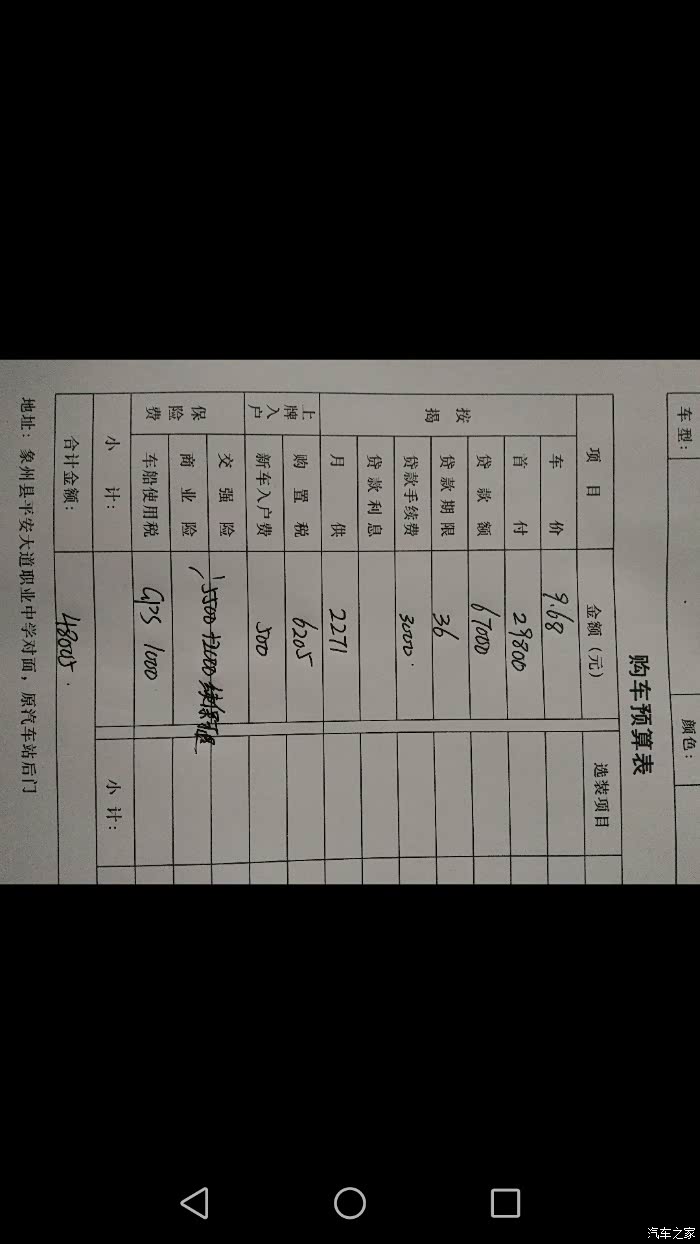 购车预算表
车型:
颜色:
项 目 金额(元) 选装项目
按揭
车 价 9.68
首 付 29800
贷 款 额 67000
贷 款 期 限 36
贷款手续费 3000.
贷 款 利 息
月 供 2271
上牌入户
购 置 税 6205
新车入户费 500
保险费
交 强 险
商 业 险 5500+2000续保押金
车船使用税 GPS 1000
小 计: 小 计:
合计金额: 48005.
地址:象州县平安大道职业中学对面,原汽车站后门
汽车之家